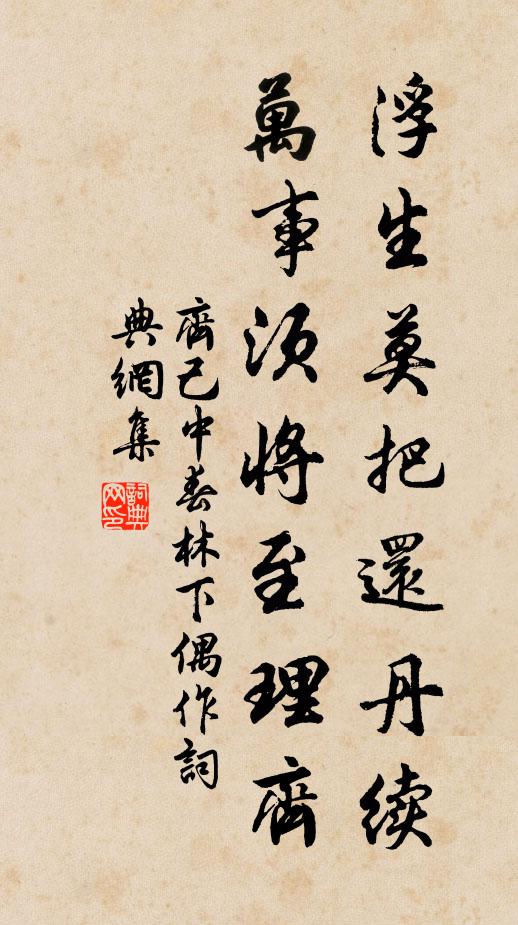 浮生莫把還丹續
萬事須將至理齊
齊己中春林下偶作詞
典網集
詞典网印